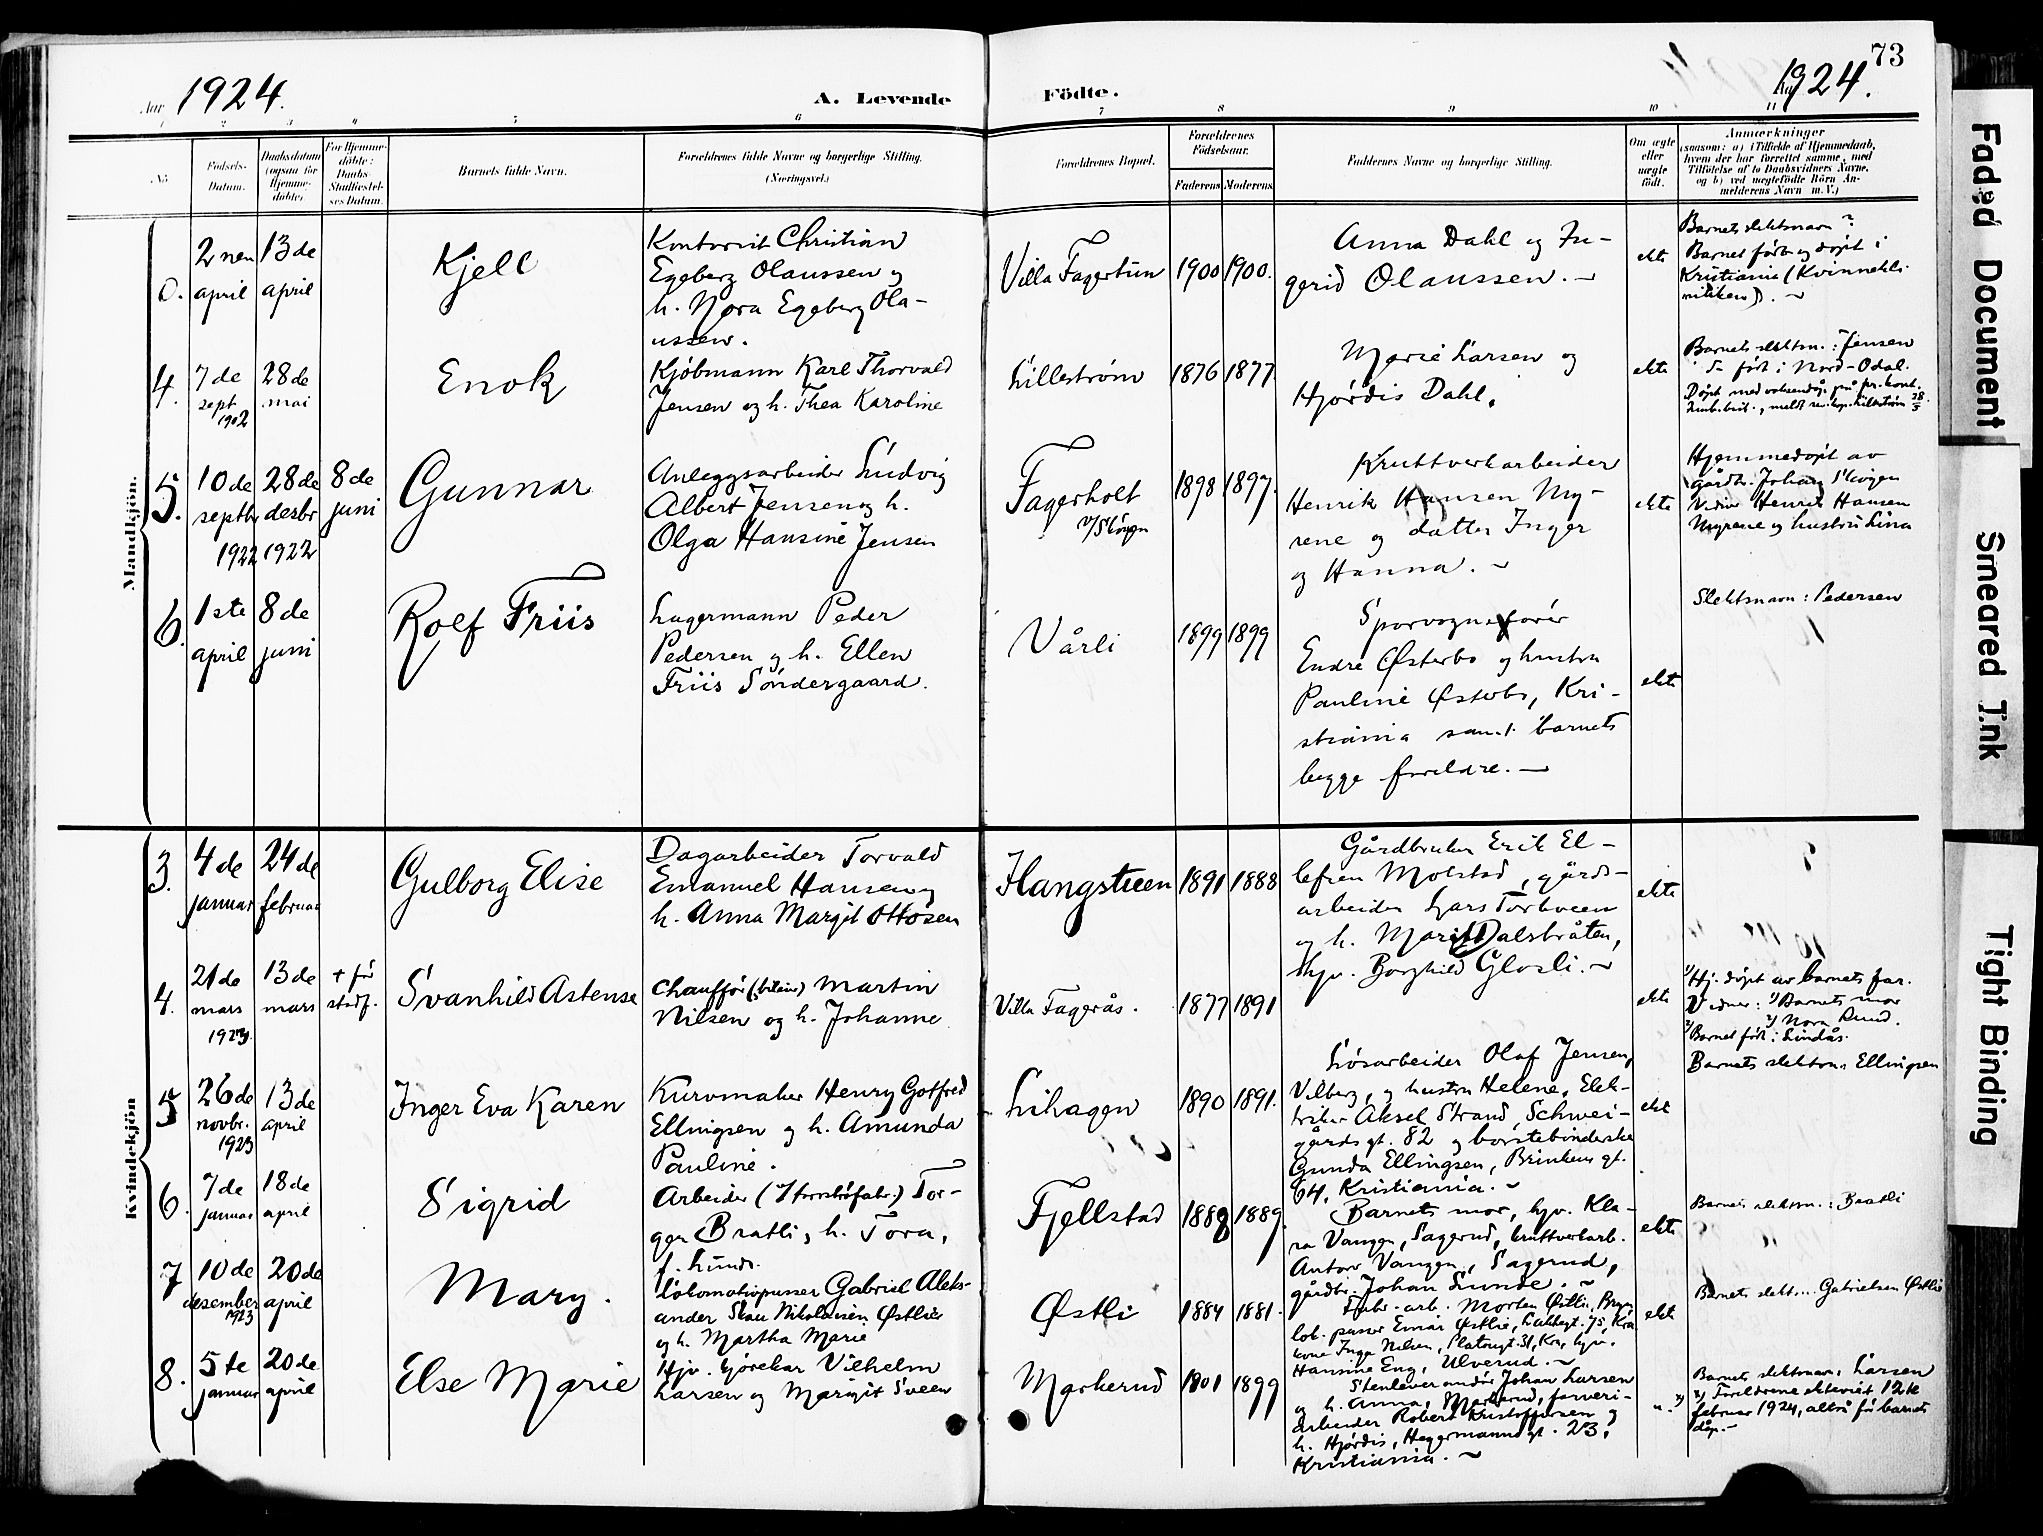 73
Aar 1924.
A. Levende
Födte.
1924.
1 2 3 4 5 6 7 8 9 10 11
No
Födsels-
Datum.
Daabsdatum
(ogsaa for
Hjemme-
döbte).
For Hjemme-
döbte:
Daabs-
Stadfæstel-
ses Datum.
Barnets fulde Navn.
Forældrenes fulde Navne og borgerlige Stilling.
(Næringsvei.)
Forældrenes Bopæl.
Forældrenes
Födselsaar.
Faderens
Moderens
Faddernes Navne og borgerlige Stilling.
Om ægte
eller
uægte
født.
Anmærkninger
(saasom: a) i Tilfælde af Hjemmedaab,
hvem der har forrettet samme, med
Tilföielse af to Daabsvidners Navne,
og b) ved uægtefödte Börn An-
melderens Navn m. V.)
Mandkjön.
2nen
april
13de
april
Kjell
Kontorist Christian
Egeberg Olaussen og
h. Nora Egeberg Ola-
ussen.
Villa Fagertun
1900
1900.
Anna Dahl og In-
gerid Olaussen. –
ekte
Barnets slektsnavn ?
Barnet født og døpt i
Kristiania (Kvinnekli-
nikken). –
4.
7de
sept
1902
28de
mai
Enok
Kjøbmann Karl Thorvald
Jensen og h. Thea Karoline
Lillestrøm
1876
1877
Marie Larsen og
Hjørdis Dahl.
ekte
Barnets slektsn.: Jensen
født i Nord-Odal.
Døpt med voksendåp på pr. kont.
5.
10de
septbr
1922
28de
desbr
1922
8de
juni
Gunnar
Anleggsarbeider Ludvig
Albert Jensen og h.
Olga Hansine Jensen
Fagerholt
v/Skogen
1898
1897.
Kruttverkarbeider
Henrik Hansen My-
rene og datter Inger
og Hanna. –
ekte
Hjemmedøpt av
gårdb. Johan Skogen
Vidne Henrik Hansen
Myrene og hustru Lina
6.
1ste
april
8de
juni
Rolf Friis
Lagermann Peder
Pedersen og h. Ellen
Friis Søndergaard.
Vårli
1899
1899
Sporvognsfører
Endre Østerbo og hustru
Pauline Østerbo, Kri-
stiania samt barnets
begge foreldre. –
ekte
Slektsnavn: Pedersen
Kvindekjön
3.
4de
januar
24de
februar
Gulborg Elise
Dagarbeider Torvald
Emanuel Hansen og
h. Anna Margit Ottosen
Hangstuen
1891
1888
Gårdbruker Erik El-
lefsen Molstad, gårds-
arbeider Lars Torbveen
og h. Marit Dalsbråten,
hjv. Borghild Glosli. –
ekte
4.
21de
mars
1923
13de
mars
+ før
stadf.
Svanhild Astense
Chauffør (bileier) Martin
Nilsen og h. Johanne
Villa Fagerås.
1877
1891
ekte
1) Hj. døpt av barnets far.
Vidner: 1) Barnets mor
2) Nora Rund.
2) Barnet født i Lindås.
5
26de
novbr.
1923
13de
april
Inger Eva Karen
Kurvmaker Henry Gotfred
Ellingsen og h. Amunda
Pauline.
Lihagen
1890
1891.
Løsarbeider Olaf Jensen,
Vilberg, og hustru Helene, Elek-
triker Aksel Strand, Schwei-
gårds gt. 82 og børstebinderske
Gunda Ellingsen, Brinkens gt.
64, Kristiania. –
ekt
Barnets slektsn. Ellingsen
6.
7de
januar
18de
april
Sigrid
Tor-
ger Bratli, h. Tora,
f. Lunde.
Fjellstad
1888
1889
Barnets mor, hjv. Kla-
ra Vangen, Sagerud, kruttverkarb.
Anton Vangen, Sagerud,
gårdb. Johan Lunde. –
ekte
Barnets slektsn.: Bratli
7
10de
desember
1923
20de
april
Mary.
Lokomotivpusser Gabriel Aleks-
ander Skau Nikolaisen Østlie
og h. Martha Marie
Østli
1884
1881.
Fabr. arb. Morten Østlie, Bryn
lok. pusser Einar Østlie,
Inga Nilsen, Platougt. 31, Kra, hjv.
Hansine Eng, Ulverud. –
ekt
Barnets slekt... Gabrielsen Østlie
8.
5te
januar
20de
april
Else Marie
Vilhelm
Larsen og Margit Sveen
Markerud
1901
1899
Johan Larsen
og h. Anna, Markerud, farveri-
arbeider Robert Kristoffersen og
h. Hjørdis, Hegermanns gt. 23,
Kristiania. –
u.
Barnets slektsnavn: Larsen
x) Foreldrene ekteviet 12te
februar 1924, altså før barnets
dåp. –
Faded Document
Smeared Ink
Tight Binding